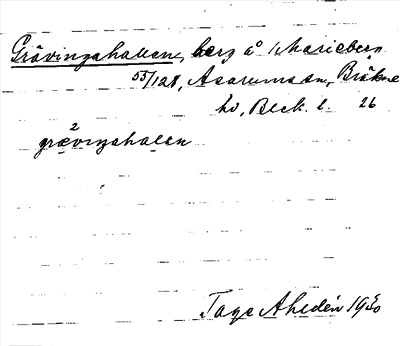 Grävingahallen, berg å Marieberg
53/128, Asarums sn, Bräkne
hd, Blek. l. 26
grä²vingahalen
Tage Ahldén 1930